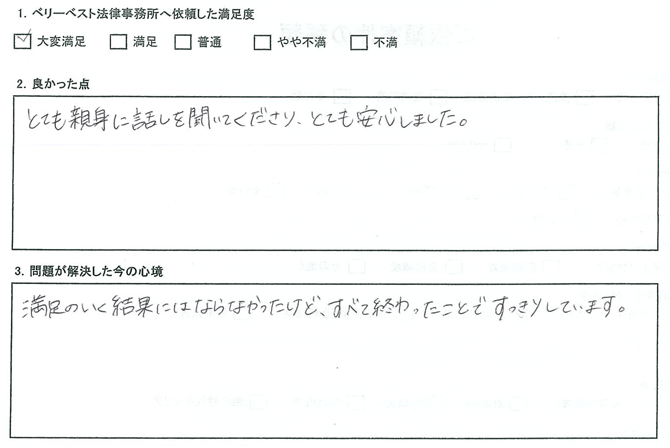 1. ベリーベスト法律事務所へ依頼した満足度
☑ 大変満足 □ 満足 □ 普通 □ やや不満 □ 不満
2. 良かった点
とても親身に話しを聞いてくださり、とても安心しました。
3. 問題が解決した今の心境
満足のいく結果にはならなかったけど、すべて終わったことですっきりしています。